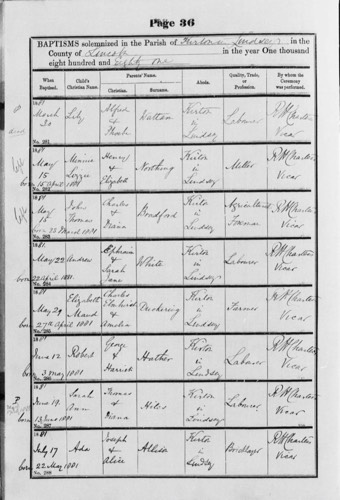 Page 36
BAPTISMS solemnized in the Parish of Kirton in Lindsey in the
County of Lincoln in the year One thousand
eight hundred and Eighty one
When Baptized. Child's Christian Name. Parents' Name. Christian. Surname. Abode. Quality, Trade, or Profession. By whom the Ceremony was performed.
1881 March 30 Lily Alfred & Dalton Kirton in Lindsey Labourer Vicar
No. 281
1881 May 15 Minnie Lizzie Henry & Elizabeth Kirton in Lindsey Miller Vicar
born 15 April 1881 No. 282
1881 May 15 John Thomas Charles & Diana Bradford Kirton in Lindsey Agricultural Foreman Vicar
born 25 March 1881 No. 283
1881 May 22 Andrew Ephraim & Sarah Jane White Kirton in Lindsey Labourer Vicar
born 22 April 1881 No. 284
1881 May 29 Elizabeth Maud Charles & Amelia Pickering Kirton in Lindsey Farmer Vicar
born 27th April 1881 No. 285
1881 June 12 Robert George & Harriet Kirton in Lindsey Labourer Vicar
born 3 May 1881 No. 286
1881 June 19 Sarah Ann Thomas & Diana Kirton in Lindsey Labourer Vicar
born 13 June 1881 No. 287
1881 July 17 Ada Joseph & Alice Kirton in Lindsey Bricklayer Vicar
born 22 May 1881 No. 288